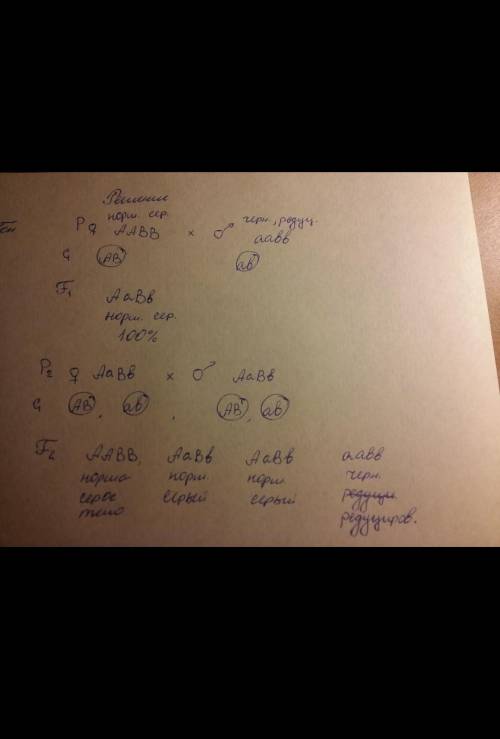 Решение
норм. сер. черн., редуц.
P ♀ AABB × ♂ aabb
G AB ab
F₁ AaBb
норм. сер.
100%
P₂ ♀ AaBb × ♂ AaBb
G AB, ab, AB, ab
F₂ AABB, AaBb AaBb aabb
норма норм. норм. черн.
серое серый серый редуцир.
тело редуциров.